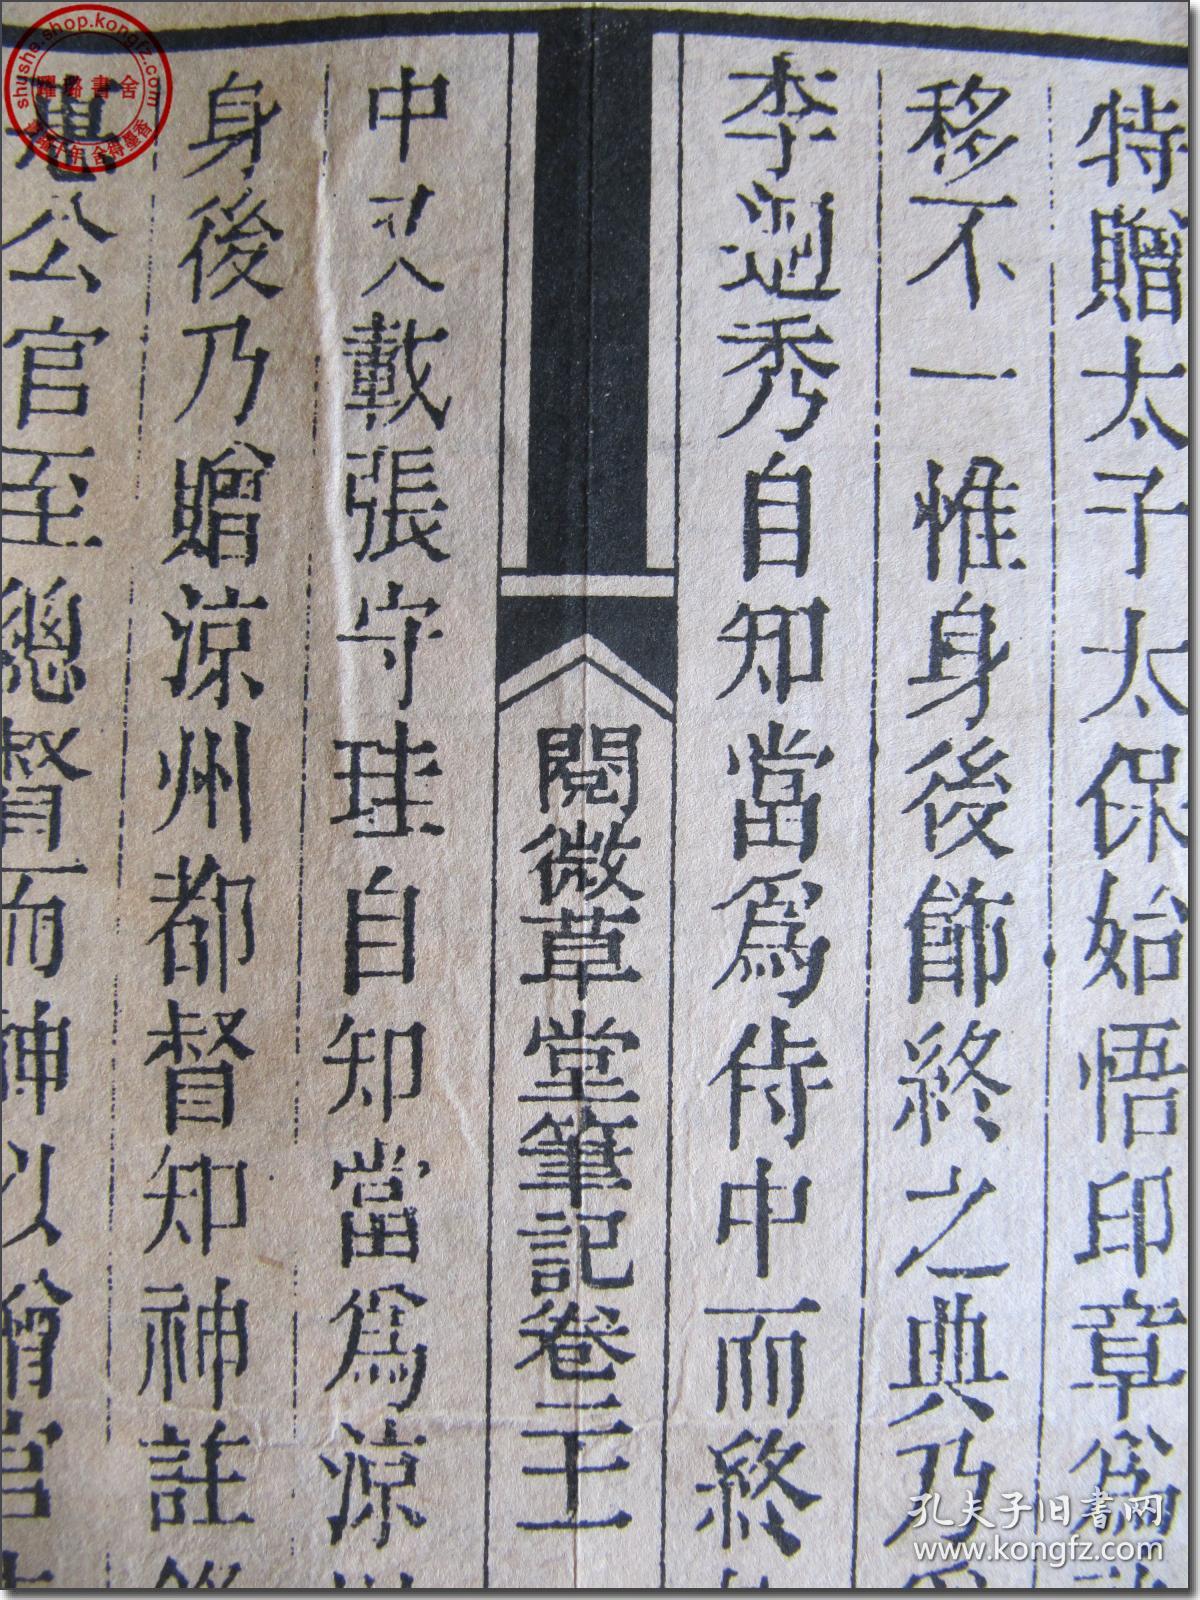 特贈太子太保始悟印章爲
移不一惟身後飾終之典乃
李迥秀自知當爲侍中而終
閱微草堂筆記卷二十一
中又載張守珪自知當爲涼
身後乃贈涼州都督知神註
公官至總督而神以贈官
shushe.shop.kongfz.com
書舍
舍得墨香
孔夫子旧书网
www.kongfz.com